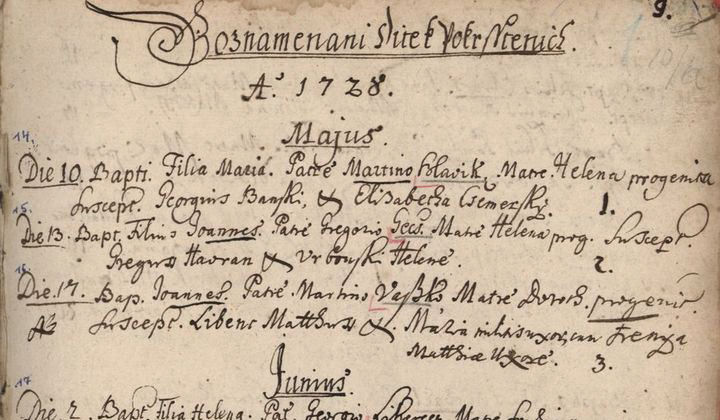 9.
Poznamenani Ditek Pokrsstenich.
A° 1728.
Majus.
14.
Die 10. Bapti. Filia Maria. Patre Martino Hlavik, Matre Helena progenita
Suscept. Georgius Banski, & Elisabetha Csemerzky. 1.
15.
Die 13. Bapt. Filius Joannes. Patre Gregorio Gecs. Matre Helena prog. Suscept.
Gregius Havran & Vrbonski Helene. 2.
16.
Die. 17. Bap. Joannes. Patre. Martino Vassko Matre Doroth. progenit.
Suscept. Libens Matthus &. Maria militis uxor,
Matthiæ Uxore. 3.
Junius.
17
Die 2. Bapt. Filia Helena. Pat. Georgio